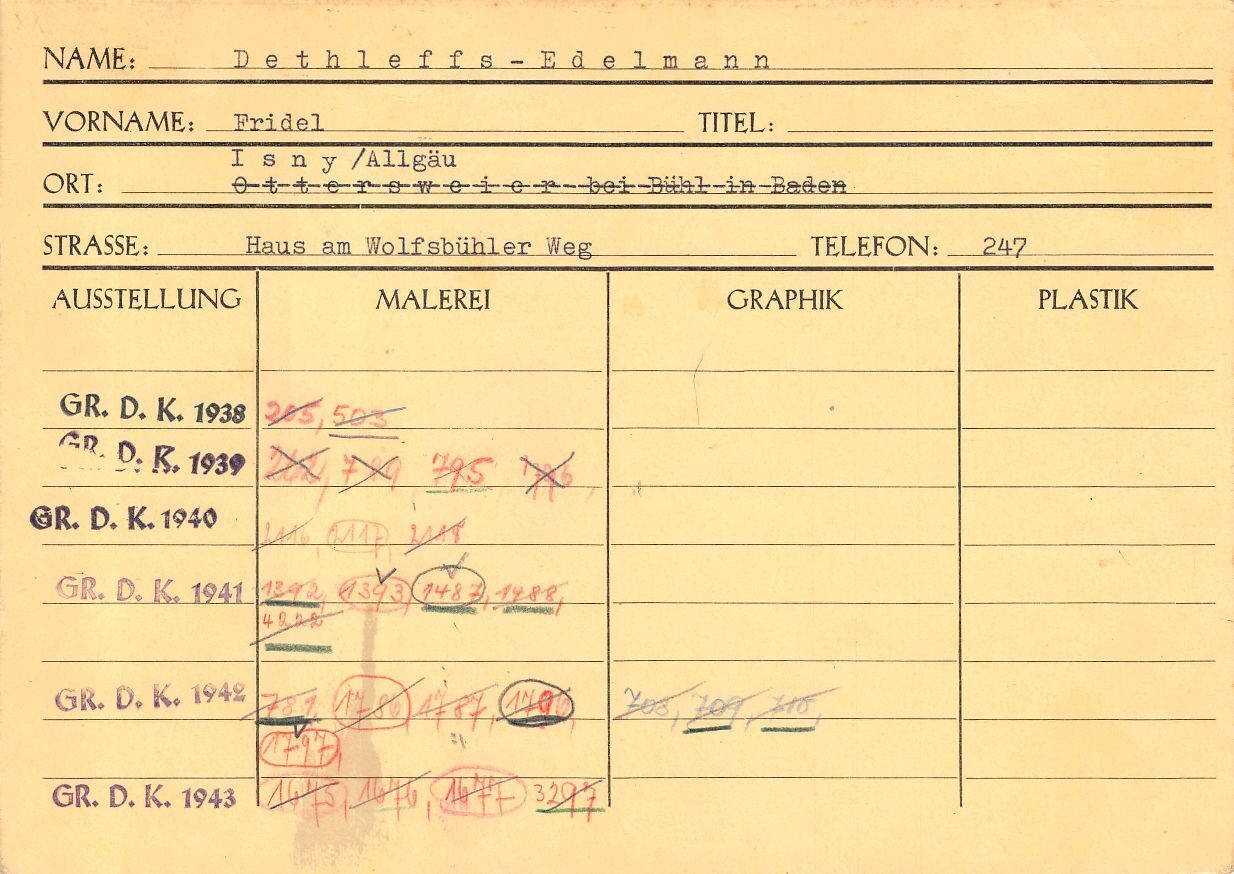 NAME: Dethleffs-Edelmann
VORNAME: Fridel TITEL:
Isny/Allgäu
ORT: Ottersweier bei Bühl in Baden
STRASSE: Haus am Wolfsbühler Weg TELEFON: 247
AUSSTELLUNG MALEREI GRAPHIK PLASTIK
GR. D. K. 1938 205, 503
GR. D. K. 1939 795
GR. D. K. 1940 2116, 2117, 2118
GR. D. K. 1941 1392, 1393, 1487, 1488,
4222
GR. D. K. 1942 1786 1787, 1796, 708, 709, 710,
1797,
GR. D. K. 1943 1675, 1676, 1677 3297